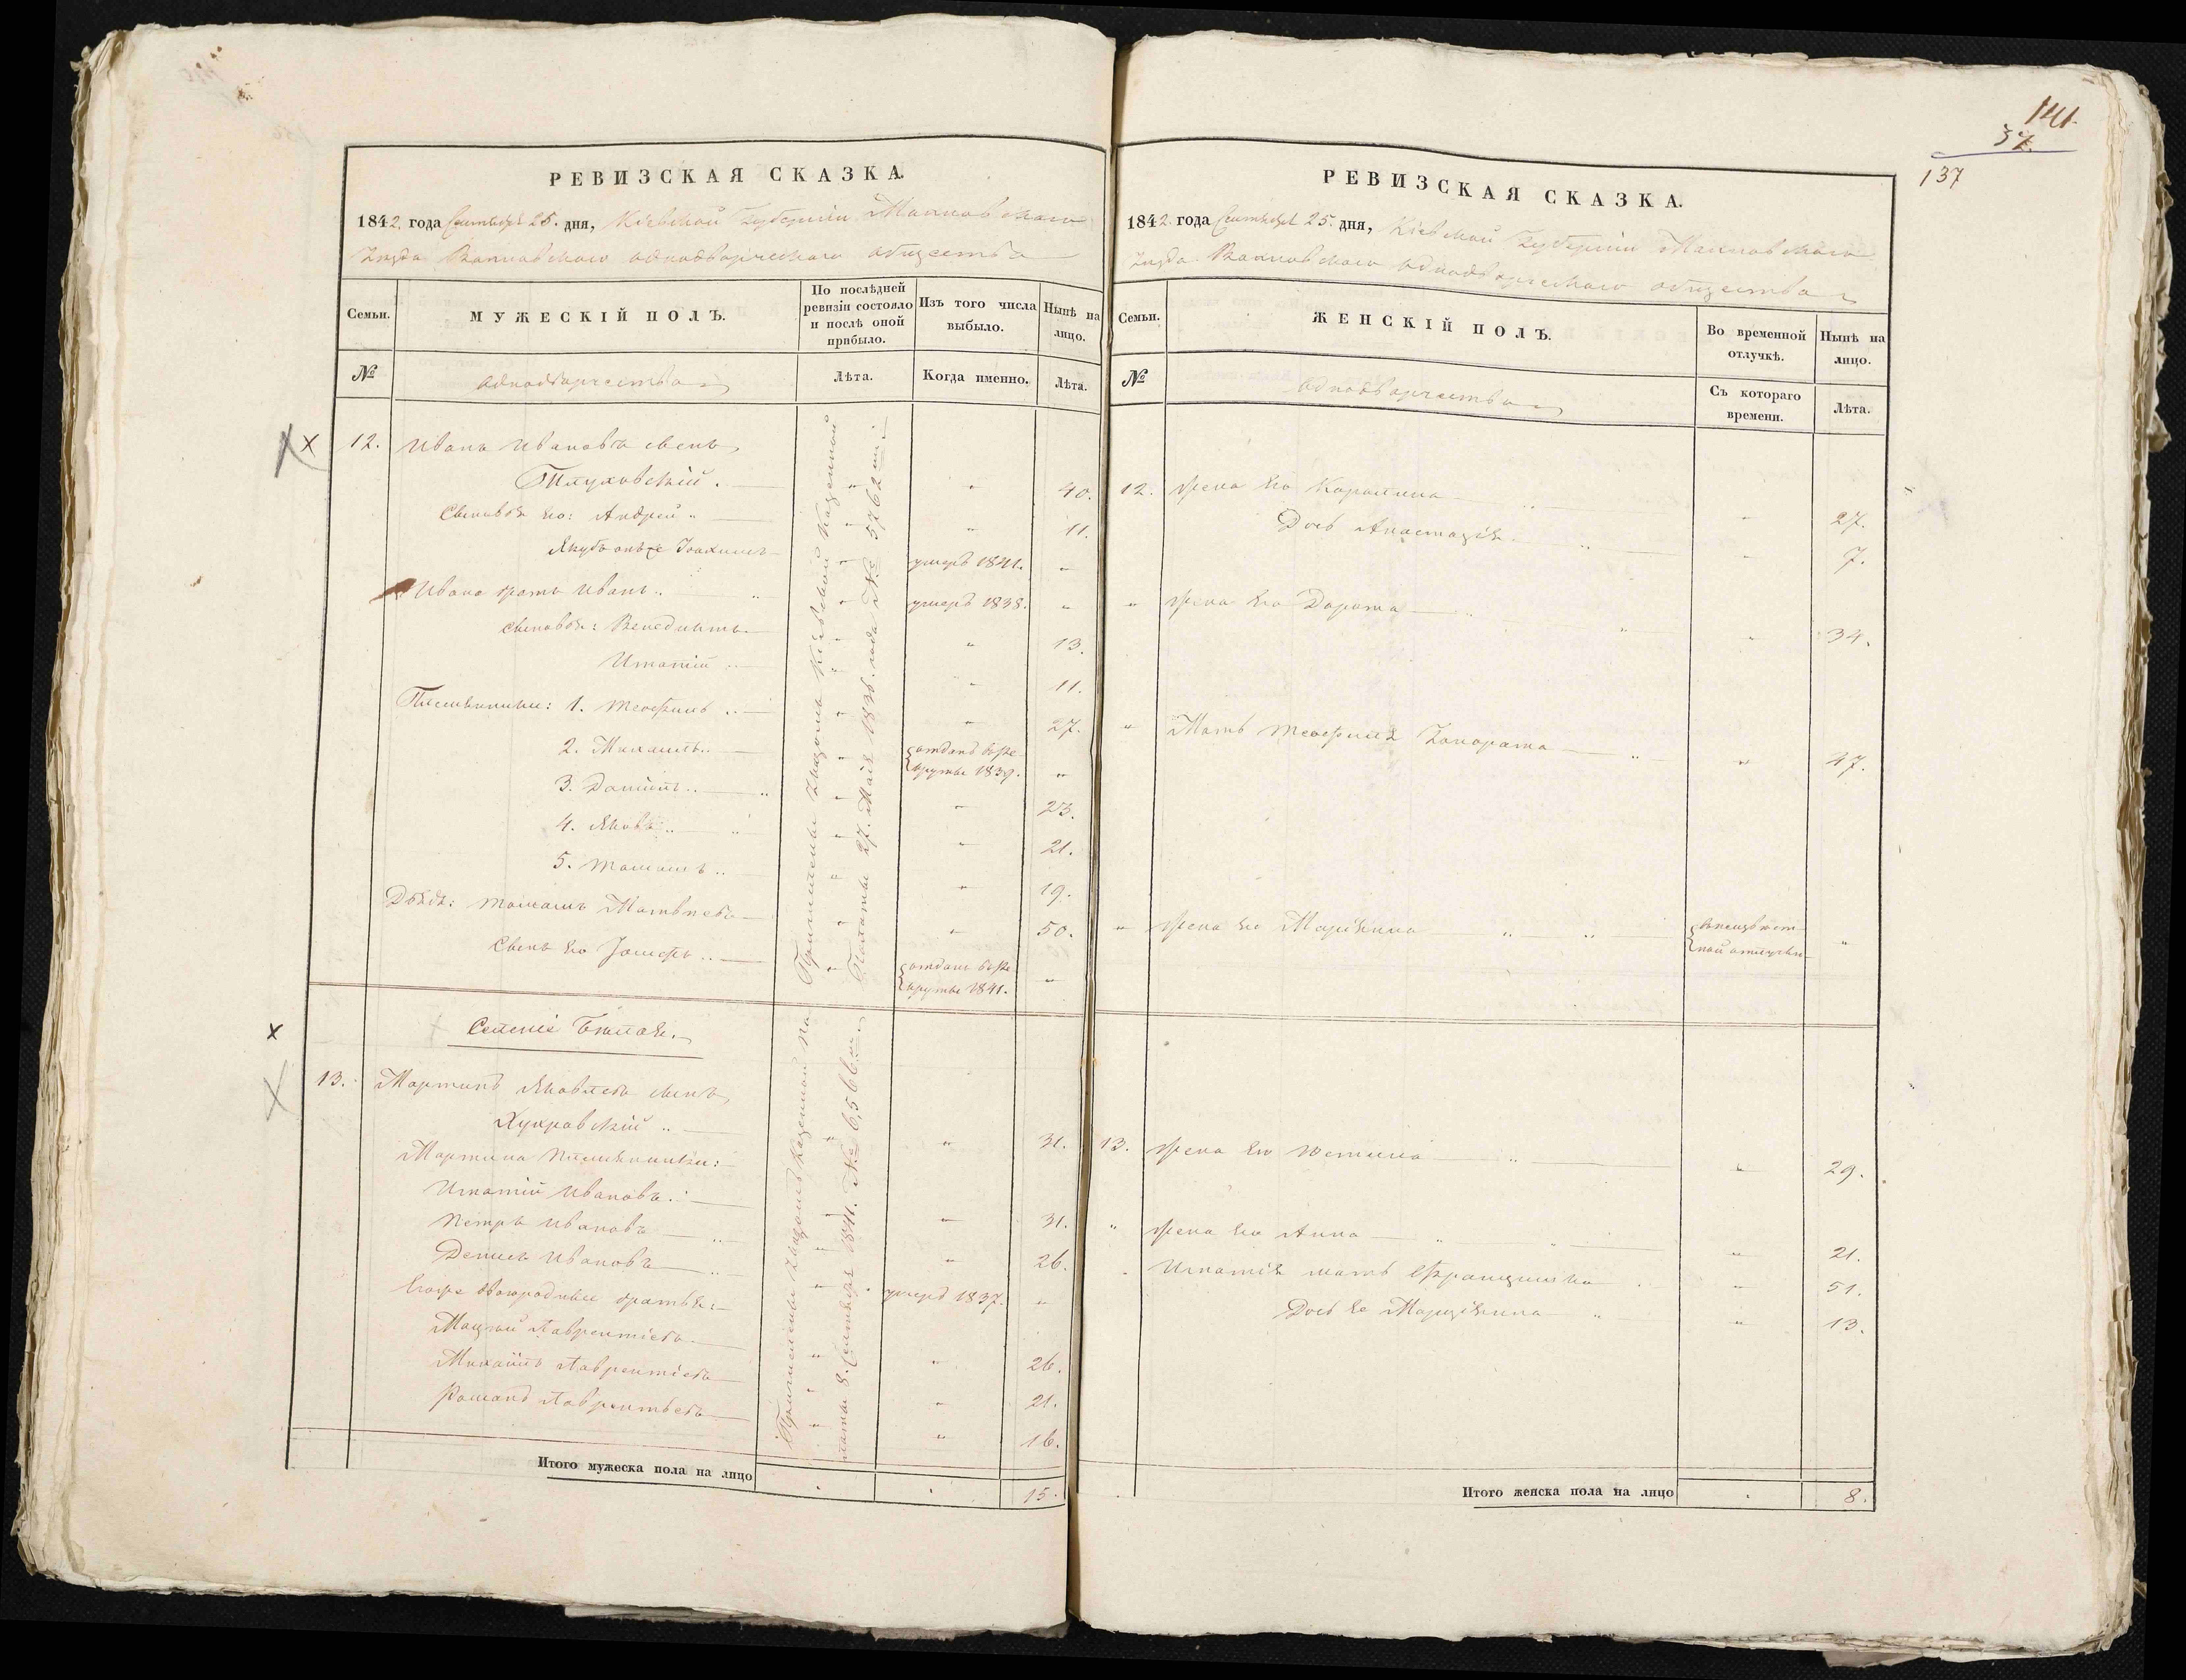 РЕВИЗСКАЯ СКАЗКА.
1842. года Сентября 25. дня, Кіевской Губерніи Махновскаго
Уѣзда Вахновскаго однодворческаго общества
Семьи.
МУЖЕСКІЙ ПОЛЪ.
По послѣдней ревизіи состояло и послѣ оной прибыло.
Изъ того числа выбыло.
Нынѣ на лицо.
№
однодворчества
Лѣта.
Когда именно.
Лѣта.
12. Иванъ Ивановъ сынъ
40.
Сыновья его: Андрей 11.
Якубъ онъ же Іоахимъ умеръ 1841.
Ивана братъ Иванъ умеръ 1838.
сыновья: Венедиктъ 13.
Игнатій 11.
Племянники: 1. Теофилъ 27.
2. Михаилъ отданъ въ ре
круты 1839.
3. Даніилъ 23.
4. Яковъ 21.
5. Томашъ 19.
Дядя: Томашъ Матвѣевъ 50.
Сынъ его Іосифъ отданъ въ ре
круты 1841.
Причислены Указомъ Кіевской Казенной
Палаты 27. Маія 1836. года № 5762
Селеніе Бѣлая.
13. Мартинъ Яковлевъ сынъ
31.
Мартина племянники:
Игнатій Ивановъ 31.
Петръ Ивановъ 26.
Денисъ Ивановъ умеръ 1837.
Его же двоюродные братья:
Мацѣй Лаврентіевъ 26.
Михаилъ Лаврентіевъ 21.
Романъ Лаврентьевъ 16.
Причислены Указомъ Казенной Па
латы 8. Сентября 1841. № 6,566
Итого мужеска пола на лицо 15.
141
37.
137
РЕВИЗСКАЯ СКАЗКА.
1842. года Сентября 25. дня, Кіевской Губерніи Махновскаго
Уѣзда Вахновскаго однодворческаго общества
Семьи.
ЖЕНСКІЙ ПОЛЪ.
Во временной отлучкѣ.
Нынѣ на лицо.
№
однодворчества
Съ котораго времени.
Лѣта.
12. Жена его Каролина 27.
Дочь Анастасія 7.
Жена его Дорота 34.
Мать Теофила Гонората 47.
Жена его Маріянна въ неизвѣст
ной отлучки
13. Жена его Юстина 29.
Жена его Анна 21.
Игнатія мать Францишка 51.
Дочь ее Марціянна 13.
Итого женска пола на лицо 8.